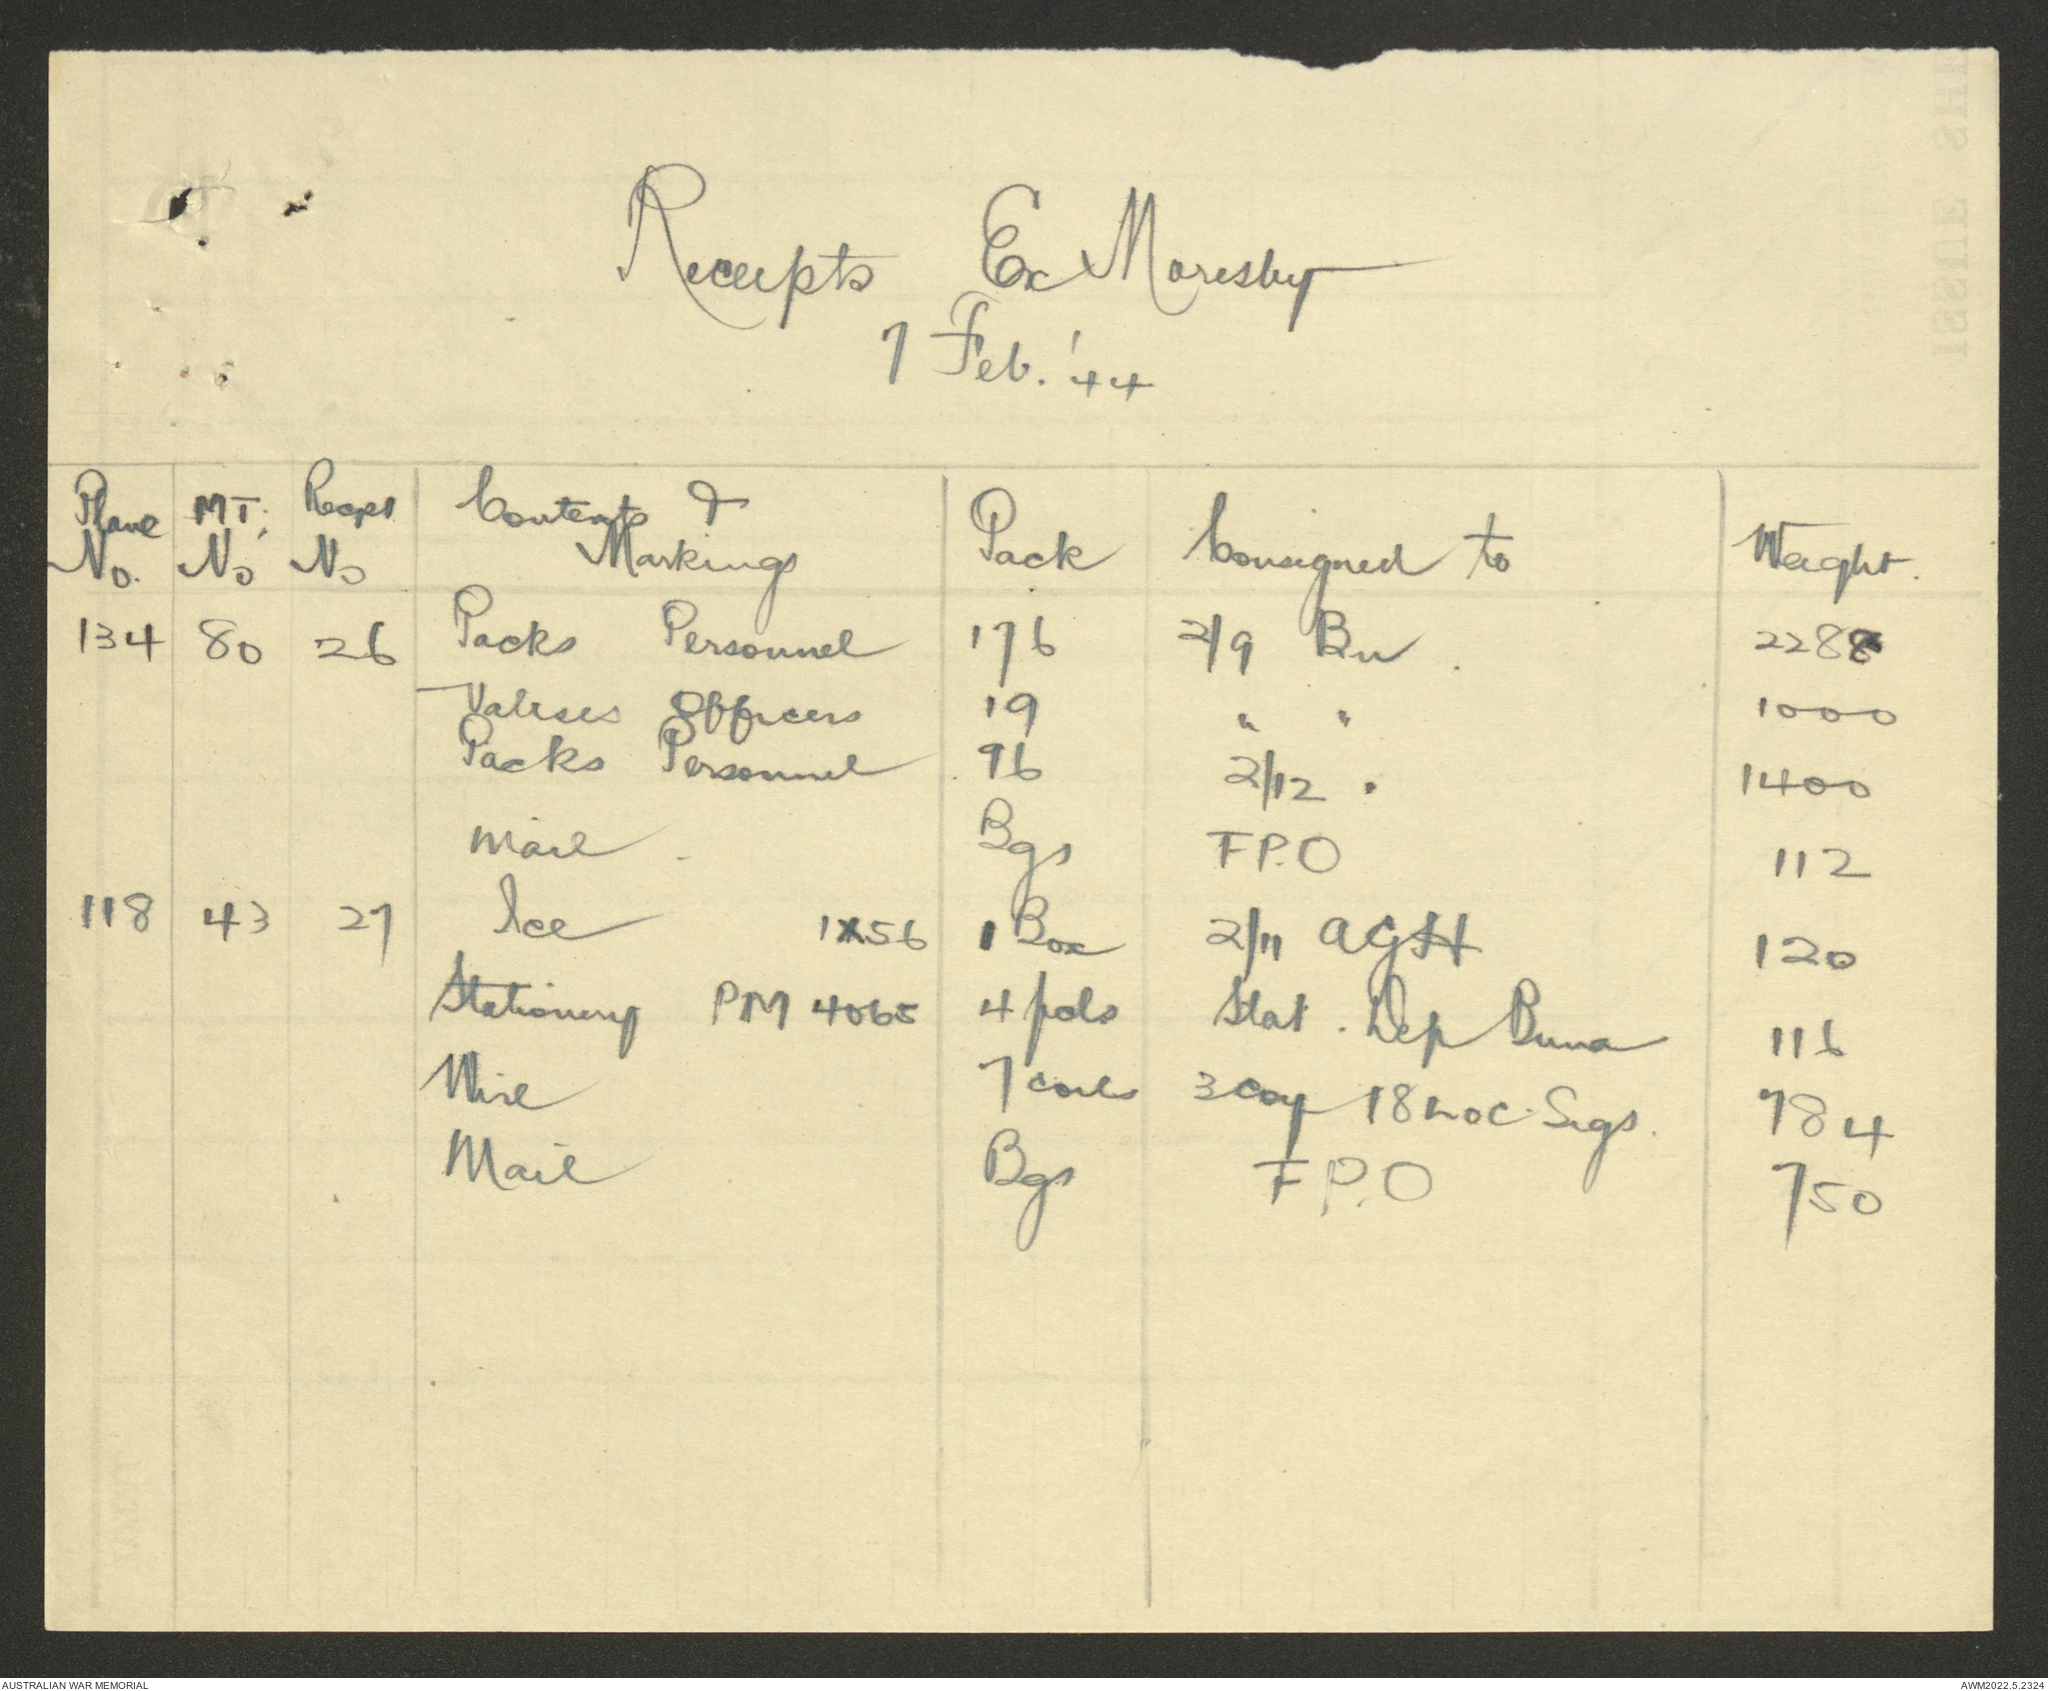 Receipts Ex Moresby
7 Feb. '44
Plane No. MT. No Recpt No Contents & Markings Pack Consigned to Weight.
134 80 26 Packs Personnel 176 2/9 Bn. 2288
Valises Officers 19 " " 1000
Packs Personnel 96 2/12 " 1400
Mail. Bgs F.P.O 112
118 43 27 Ice 1X56 1 Box 2/11 AGH 120
Stationery PM 4065 4 pcls Stat. Dep Buna 116
Wire 7 coils 3 coy 18 LOC Sigs. 784
Mail Bgs F.P.O 750
AUSTRALIAN WAR MEMORIAL
AWM2022.5.2324